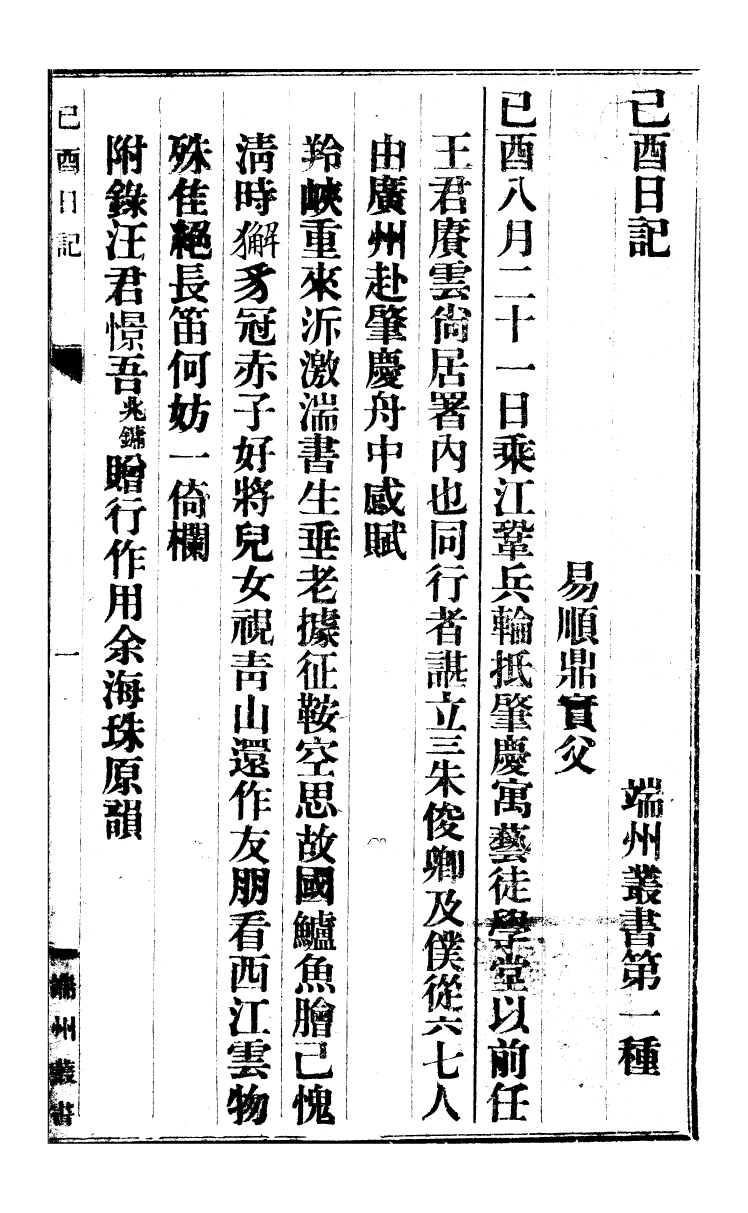 己酉日記　　端州叢書第一種
易順鼎實父
己酉八月二十一日乘江鞏兵輪抵肇慶寓藝徒學堂以前任
王君賡雲尙居署內也同行者諶立三朱俊卿及僕從六七人
由廣州赴肇慶舟中感賦
羚峽重來泝激湍書生垂老據征鞍空思故國鱸魚膾已愧
淸時獬豸冠赤子好將兒女視靑山還作友朋看西江雲物
殊佳絕長笛何妨一倚欄
附錄汪君憬吾兆鏞贈行作用余海珠原韻
己酉日記　一　端州叢書